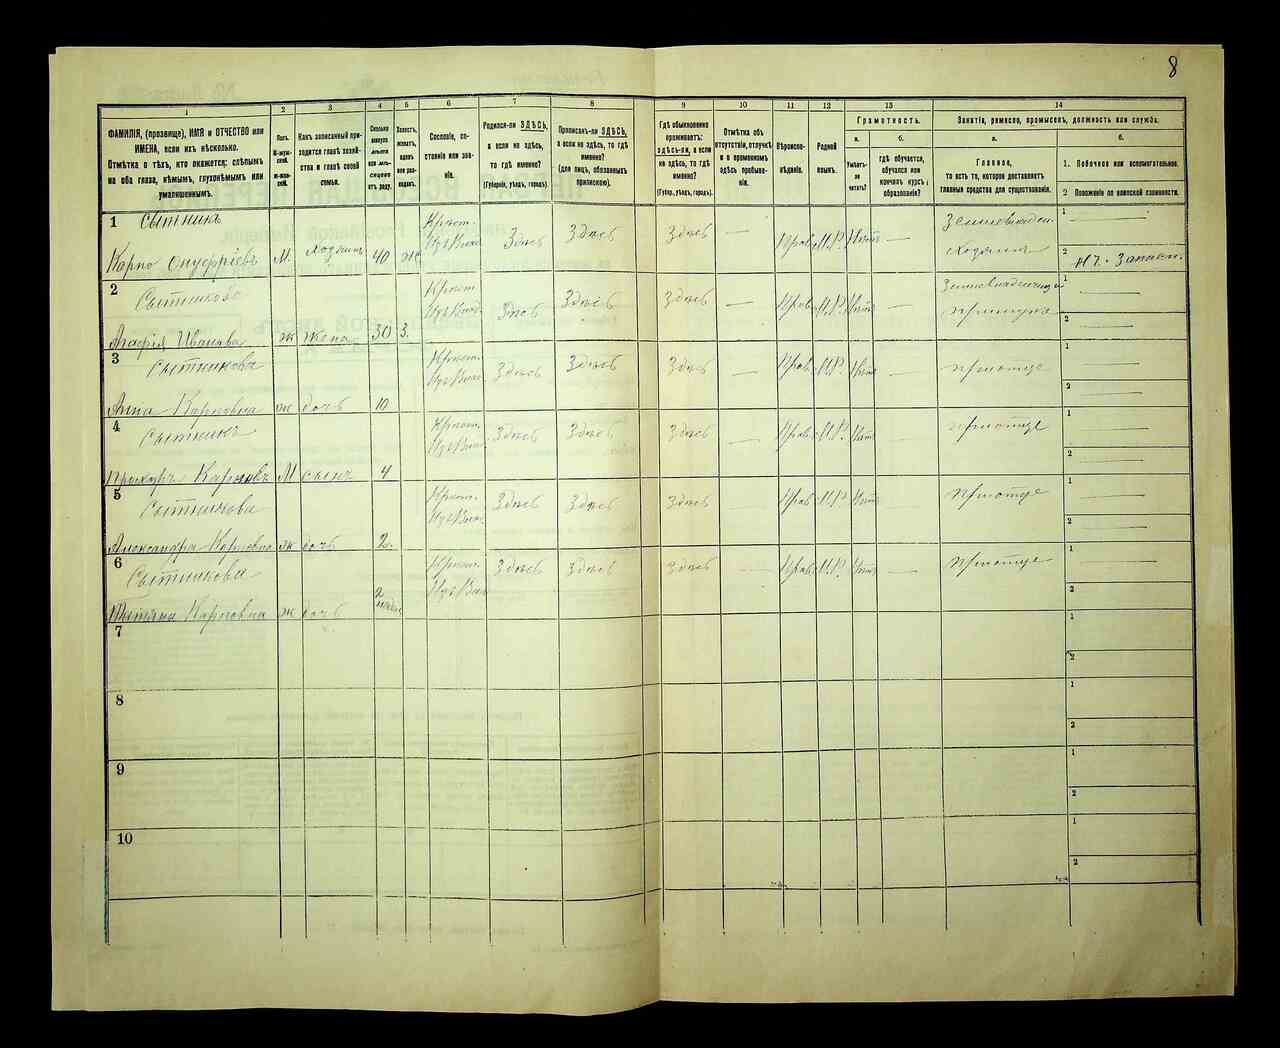 8
1
2
3
4
5
6
7
8
9
10
11
12
13
14
ФАМИЛІЯ, (прозвище), ИМЯ и ОТЧЕСТВО или
ИМЕНА, если ихъ нѣсколько.
Отмѣтка о тѣхъ, кто окажется: слѣпымъ
на оба глаза, нѣмымъ, глухонѣмымъ или
умалишеннымъ.
Полъ.
М-муж-
ской.
Ж-жен-
скій.
Какъ записанный при-
ходится главѣ хозяй-
ства и главѣ своей
семьи.
Сколько
минуло
лѣтъ
или мѣ-
сяцевъ
отъ роду.
Холостъ,
женатъ,
вдовъ
или раз-
веденъ.
Сословіе, со-
стояніе или зва-
ніе.
Родился-ли ЗДѢСЬ,
а если не здѣсь,
то гдѣ именно?
(Губернія, уѣздъ, городъ).
Приписанъ-ли ЗДѢСЬ,
а если не здѣсь, то гдѣ
именно?
(для лицъ, обязанныхъ
припискою).
Гдѣ обыкновенно
проживаетъ:
здѣсь-ли, а если
не здѣсь, то гдѣ
именно?
(Губер., уѣздъ, городъ).
Отмѣтка объ
отсутствіи, отлучкѣ
и о временномъ
здѣсь пребыва-
ніи.
Вѣроиспо-
вѣданіе.
Родной
языкъ.
Грамотность.
а.
Умѣетъ-
ли
читать?
б.
гдѣ обучается,
обучался или
кончилъ курсъ
образованія?
Занятіе, ремесло, промыселъ, должность или служба.
а.
Главное,
то есть то, которое доставляетъ
главныя средства для существованія.
б.
1. Побочное или вспомогательное.
2 Положеніе по воинской повинности.
1 Сытникъ Крест. Здѣсь Здѣсь Здѣсь — Прав. М.Р. Нѣтъ — 1 —
Карпо Онуфріевъ М. хозяинъ 40 ж. хозяинъ 2
2 Сытникова Крест. Здѣсь Здѣсь Здѣсь — Прав. М.Р. Нѣтъ — 1 —
Агафія Иванова ж жена 30 З. 2 —
3 Сытникова Крест. Здѣсь Здѣсь Здѣсь — Прав. М.Р. Нѣтъ — при отце 1 —
Анна Карповна ж дочь 10 2 —
4 Сытникъ Крест. Здѣсь Здѣсь Здѣсь — Прав. М.Р. Нѣтъ — при отце 1 —
Прохоръ Карповъ М сынъ 4 2 —
5 Сытникова Крест. Здѣсь Здѣсь Здѣсь — Прав. М.Р. Нѣтъ — при отце 1 —
Александра Карповна ж дочь 2. 2 —
6 Сытникова Крест. Здѣсь Здѣсь Здѣсь — Прав. М.Р. Нѣтъ — при отце 1 —
Татьяна Карповна ж дочь 2 2 —
7 1
2
8 1
2
9 1
2
10 1
2